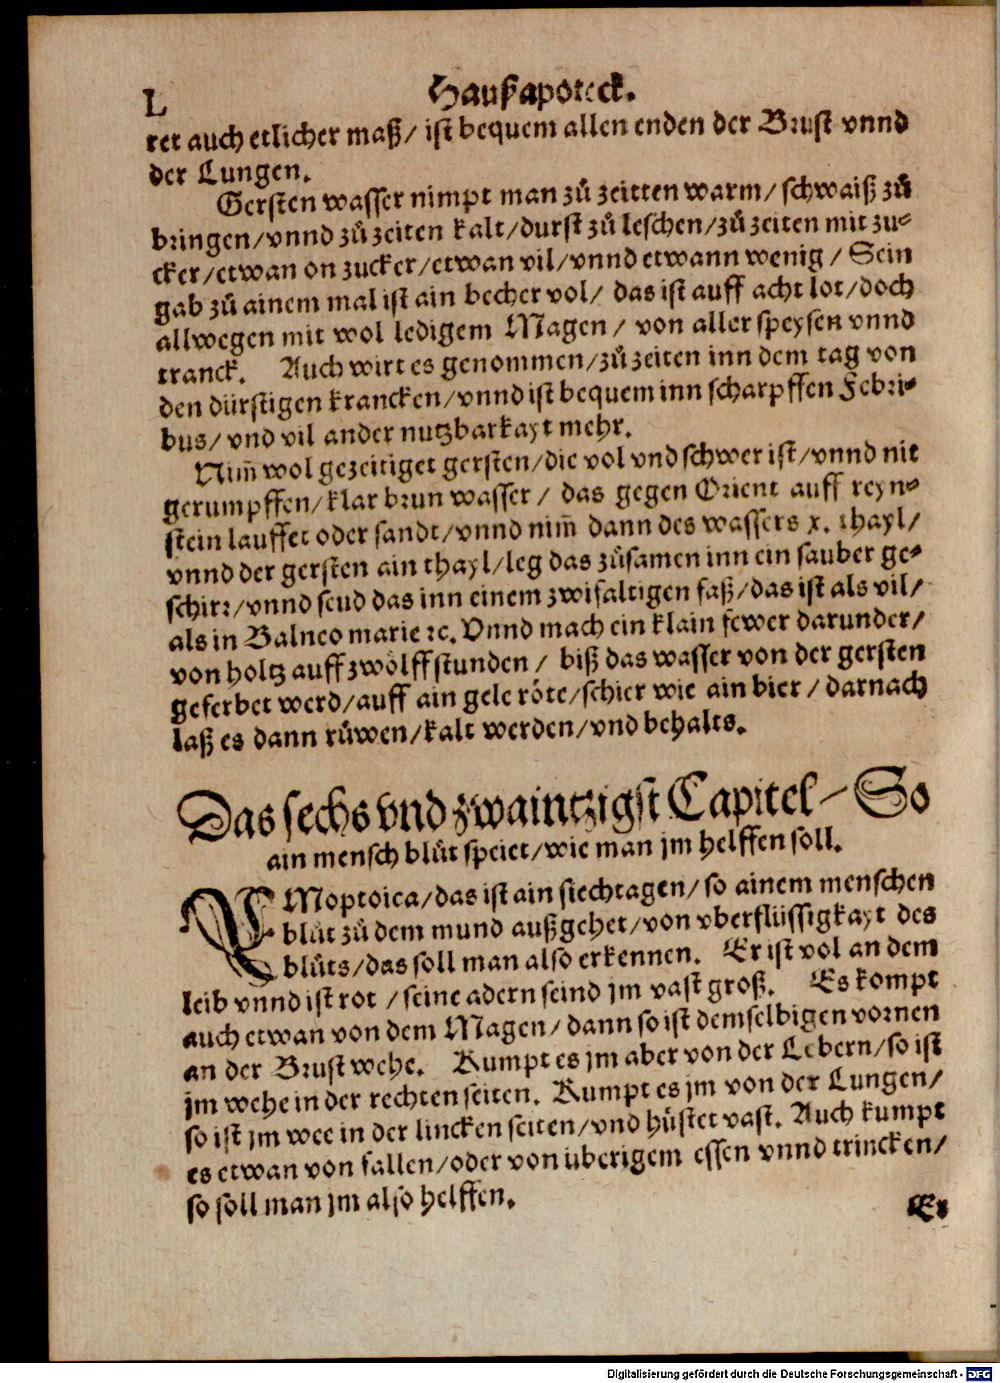 L
Haußapoteck.
ret auch etlicher maß/ ist bequem allen enden der Brust vnnd
der Lungen.
Gersten wasser nimpt man zů zeitten warm/ schwaiß zů
bringen/vnnd zů zeiten kalt/durst zů leschen/zů zeiten mit zu⸗
cker/etwan on zucker/etwan vil/vnnd etwann wenig / Sein
gab zů ainem mal ist ain becher vol/ das ist auff acht lot/doch
allwegen mit wol ledigem Magen/ von aller speysen vnnd
tranck. Auch wirt es genommen/zů zeiten inn dem tag von
den dürstigen krancken/vnnd ist bequem inn scharpffen Febri⸗
bus/ vnd vil ander nutzbarkayt mehr.
Nim̃ wol gezeitiget gersten/die vol vnd schwer ist/vnnd nit
gerumpffen/klar brun wasser / das gegen Orient auff reyn⸗
stein lauffet oder sandt/vnnd nim̃ dann des wassers x. thayl/
vnnd der gersten ain thayl/leg das zůsamen inn ein sauber ge⸗
schirr/vnnd seud das inn einem zwifaltigen faß/das ist als vil/
als in Balneo marie ꝛc. Vnnd mach ein klain fewer darunder/
von holtz auff zwölff stunden / biß das wasser von der gersten
geferbet werd/auff ain gele röte/schier wie ain bier / darnach
laß es dann růwen/kalt werden/vnd behalts.
Das sechs vnd zwaintzigst Capitel/ So
ain mensch blůt speiet/wie man jm helffen soll.
EMoptoica/das ist ain siechtagen/so ainem menschen
blůt zů dem mund außgehet/von vberflüssigkayt des
blůts/das soll man also erkennen. Er ist vol an dem
leib vnnd ist rot /seine adern seind jm vast groß. Es kompt
auch etwan von dem Magen/dann so ist demselbigen vornen
an der Brust wehe. Kumpt es jm aber von der Lebern/so ist
jm wehe in der rechten seiten. Kumpt es jm von der Lungen/
so ist jm wee in der lincken seiten/vnd hůstet vast. Auch kumpt
es etwan von fallen/oder von überigem essen vnnd trincken/
so soll man jm also helffen.
Er
Digitalisierung gefördert durch die Deutsche Forschungsgemeinschaft - DFG